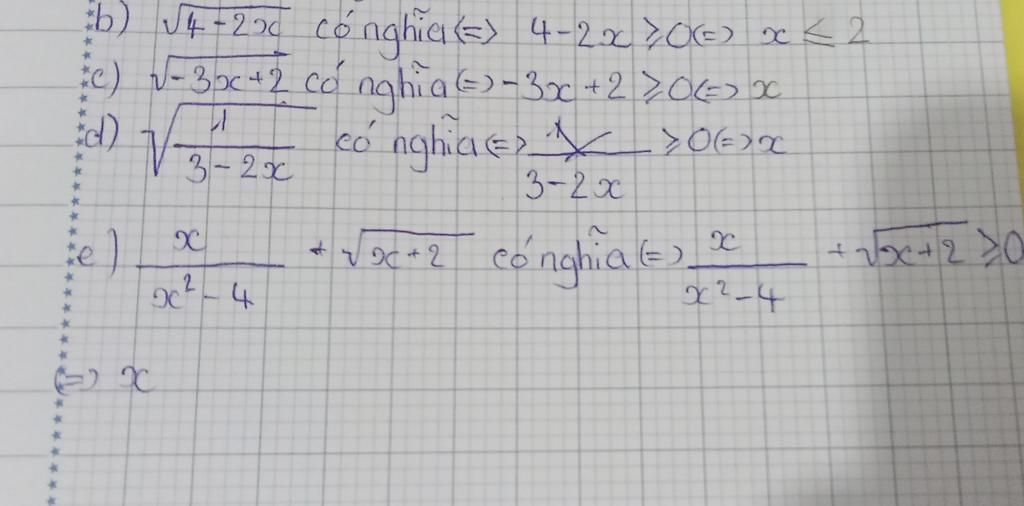 b) √4-2x có nghĩa (=) 4-2x ≥0(=) x ≤ 2
c) √-3x+2 có nghĩa(=)-3x+2 ≥0(=) x
d) √1/(3-2x) có nghĩa(=) 1/(3-2x) ≥0(=)x
e) x/(x²-4) + √x+2 có nghĩa(=) x/(x²-4) + √x+2 ≥0
(=) x